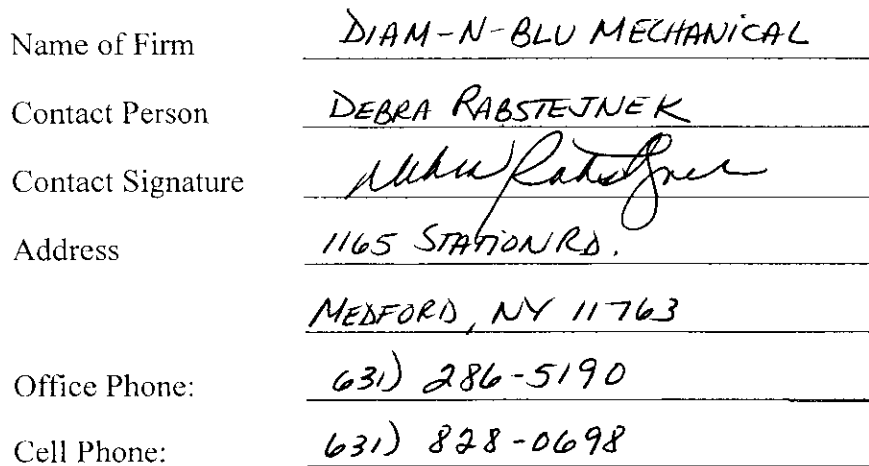 Name of Firm DIAM-N-BLU MECHANICAL
Contact Person DEBRA RABSTEJNEK
Contact Signature
Address 1165 STATION RD.
MEDFORD, NY 11763
Office Phone: 631) 286-5190
Cell Phone: 631) 828-0698